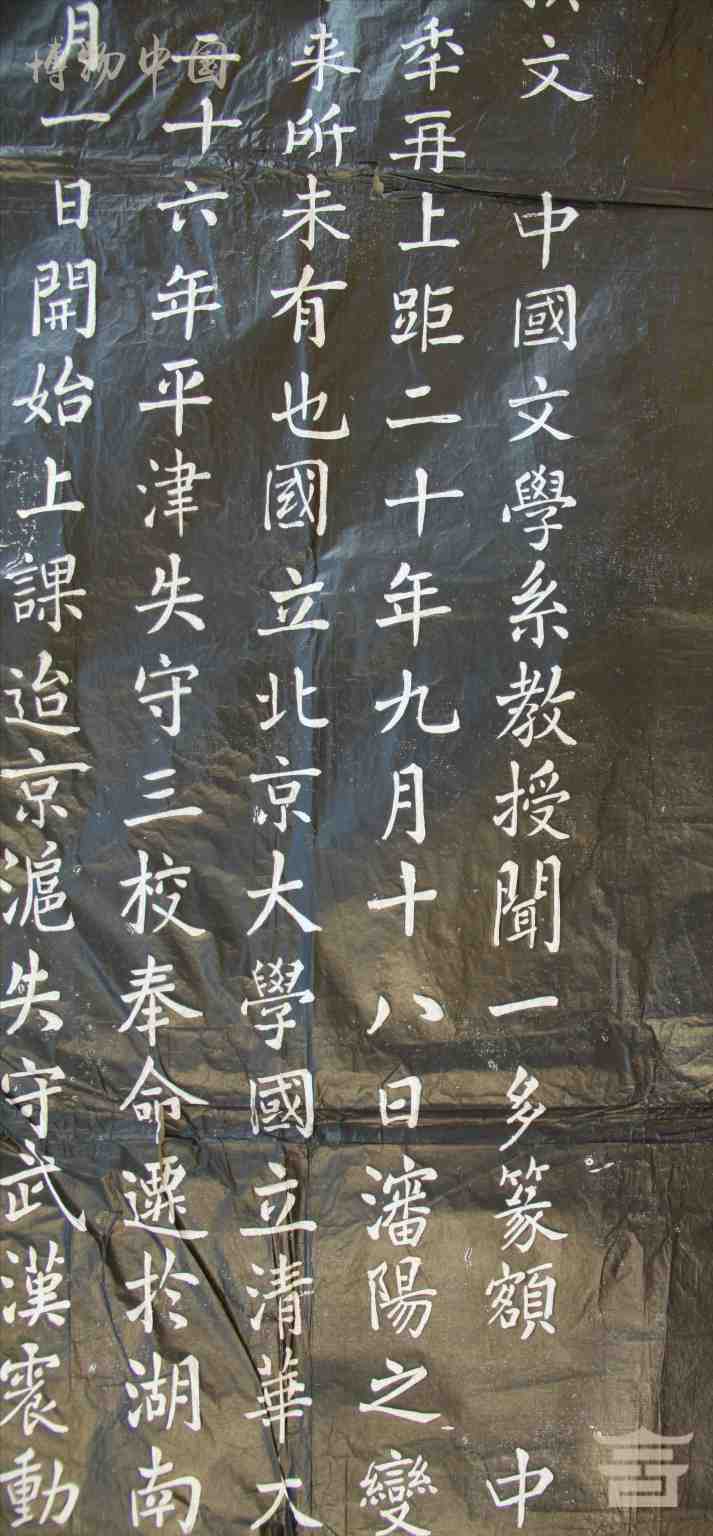 文 中國文學系教授聞一多篆額 中
秊再上距二十年九月十八日瀋陽之變
来所未有也國立北京大學國立清華大
十六年平津失守三校奉命遷於湖南
月一日開始上課迨京滬失守武漢震動
博物中国